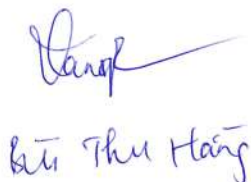 Bùi Thu Hằng